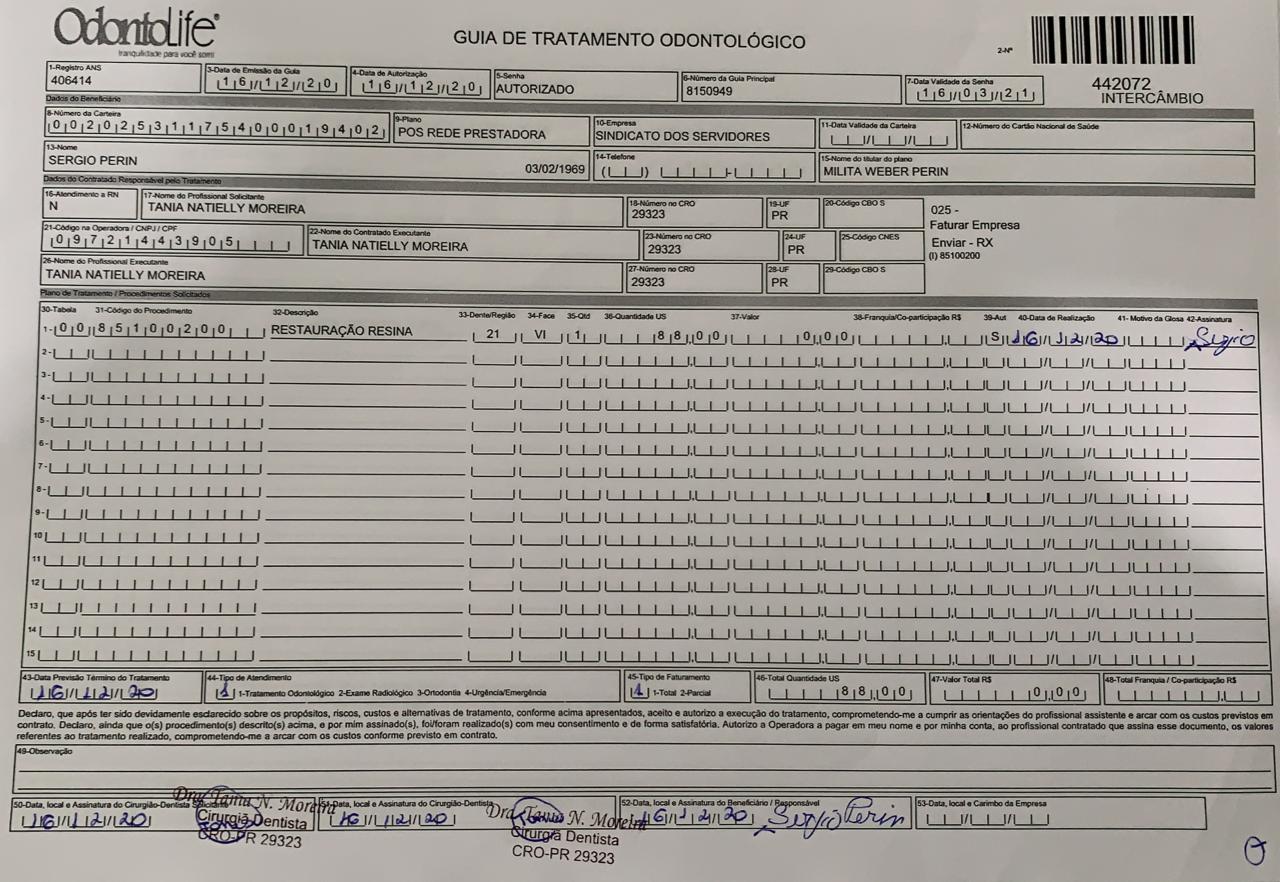 OdontoLife®
tranquilidade para você sorrir
GUIA DE TRATAMENTO ODONTOLÓGICO
2-Nº
442072
INTERCÂMBIO
1-Registro ANS 406414
3-Data de Emissão da Guia 16/12/20
4-Data de Autorização 16/12/20
5-Senha AUTORIZADO
6-Número da Guia Principal 8150949
7-Data Validade da Senha 16/03/21
Dados do Beneficiário
8-Número da Carteira 00202531175400019402
9-Plano POS REDE PRESTADORA
10-Empresa SINDICATO DOS SERVIDORES
11-Data Validade da Carteira
12-Número do Cartão Nacional de Saúde
13-Nome SERGIO PERIN 03/02/1969
14-Telefone
15-Nome do titular do plano MILITA WEBER PERIN
Dados do Contratado Responsável pelo Tratamento
16-Atendimento a RN N
17-Nome do Profissional Solicitante TANIA NATIELLY MOREIRA
18-Número no CRO 29323
19-UF PR
20-Código CBO S
025 -
Faturar Empresa
Enviar - RX
(I) 85100200
21-Código na Operadora / CNPJ / CPF 09721443905
22-Nome do Contratado Executante TANIA NATIELLY MOREIRA
23-Número no CRO 29323
24-UF PR
25-Código CNES
26-Nome do Profissional Executante TANIA NATIELLY MOREIRA
27-Número no CRO 29323
28-UF PR
29-Código CBO S
Plano de Tratamento / Procedimentos Solicitados
30-Tabela 31-Código do Procedimento 32-Descrição 33-Dente/Região 34-Face 35-Qtd 36-Quantidade US 37-Valor 38-Franquia/Co-participação R$ 39-Aut 40-Data de Realização 41- Motivo da Glosa 42-Assinatura
1- 00 85100200 RESTAURAÇÃO RESINA 21 VI 1 88,00 0,00 S 16/12/20 Sergio
2-
3-
4-
5-
6-
7-
8-
9-
10
11
12
13
14
15
43-Data Previsão Término do Tratamento 16/12/20
44-Tipo de Atendimento 1 1-Tratamento Odontológico 2-Exame Radiológico 3-Ortodontia 4-Urgência/Emergência
45-Tipo de Faturamento 1 1-Total 2-Parcial
46-Total Quantidade US 88,00
47-Valor Total R$ 0,00
48-Total Franquia / Co-participação R$
Declaro, que após ter sido devidamente esclarecido sobre os propósitos, riscos, custos e alternativas de tratamento, conforme acima apresentados, aceito e autorizo a execução do tratamento, comprometendo-me a cumprir as orientações do profissional assistente e arcar com os custos previstos em
contrato. Declaro, ainda que o(s) procedimento(s) descrito(s) acima, e por mim assinado(s), foi/foram realizado(s) com meu consentimento e de forma satisfatória. Autorizo a Operadora a pagar em meu nome e por minha conta, ao profissional contratado que assina esse documento, os valores
referentes ao tratamento realizado, comprometendo-me a arcar com os custos conforme previsto em contrato.
49-Observação
50-Data, local e Assinatura do Cirurgião-Dentista Solicitante 16/12/20
Dra. Tania N. Moreira
Cirurgiã Dentista
CRO-PR 29323
51-Data, local e Assinatura do Cirurgião-Dentista 16/12/20
Dra. Tania N. Moreira
Cirurgiã Dentista
CRO-PR 29323
52-Data, local e Assinatura do Beneficiário / Responsável 16/12/20 Sergio Perin
53-Data, local e Carimbo da Empresa